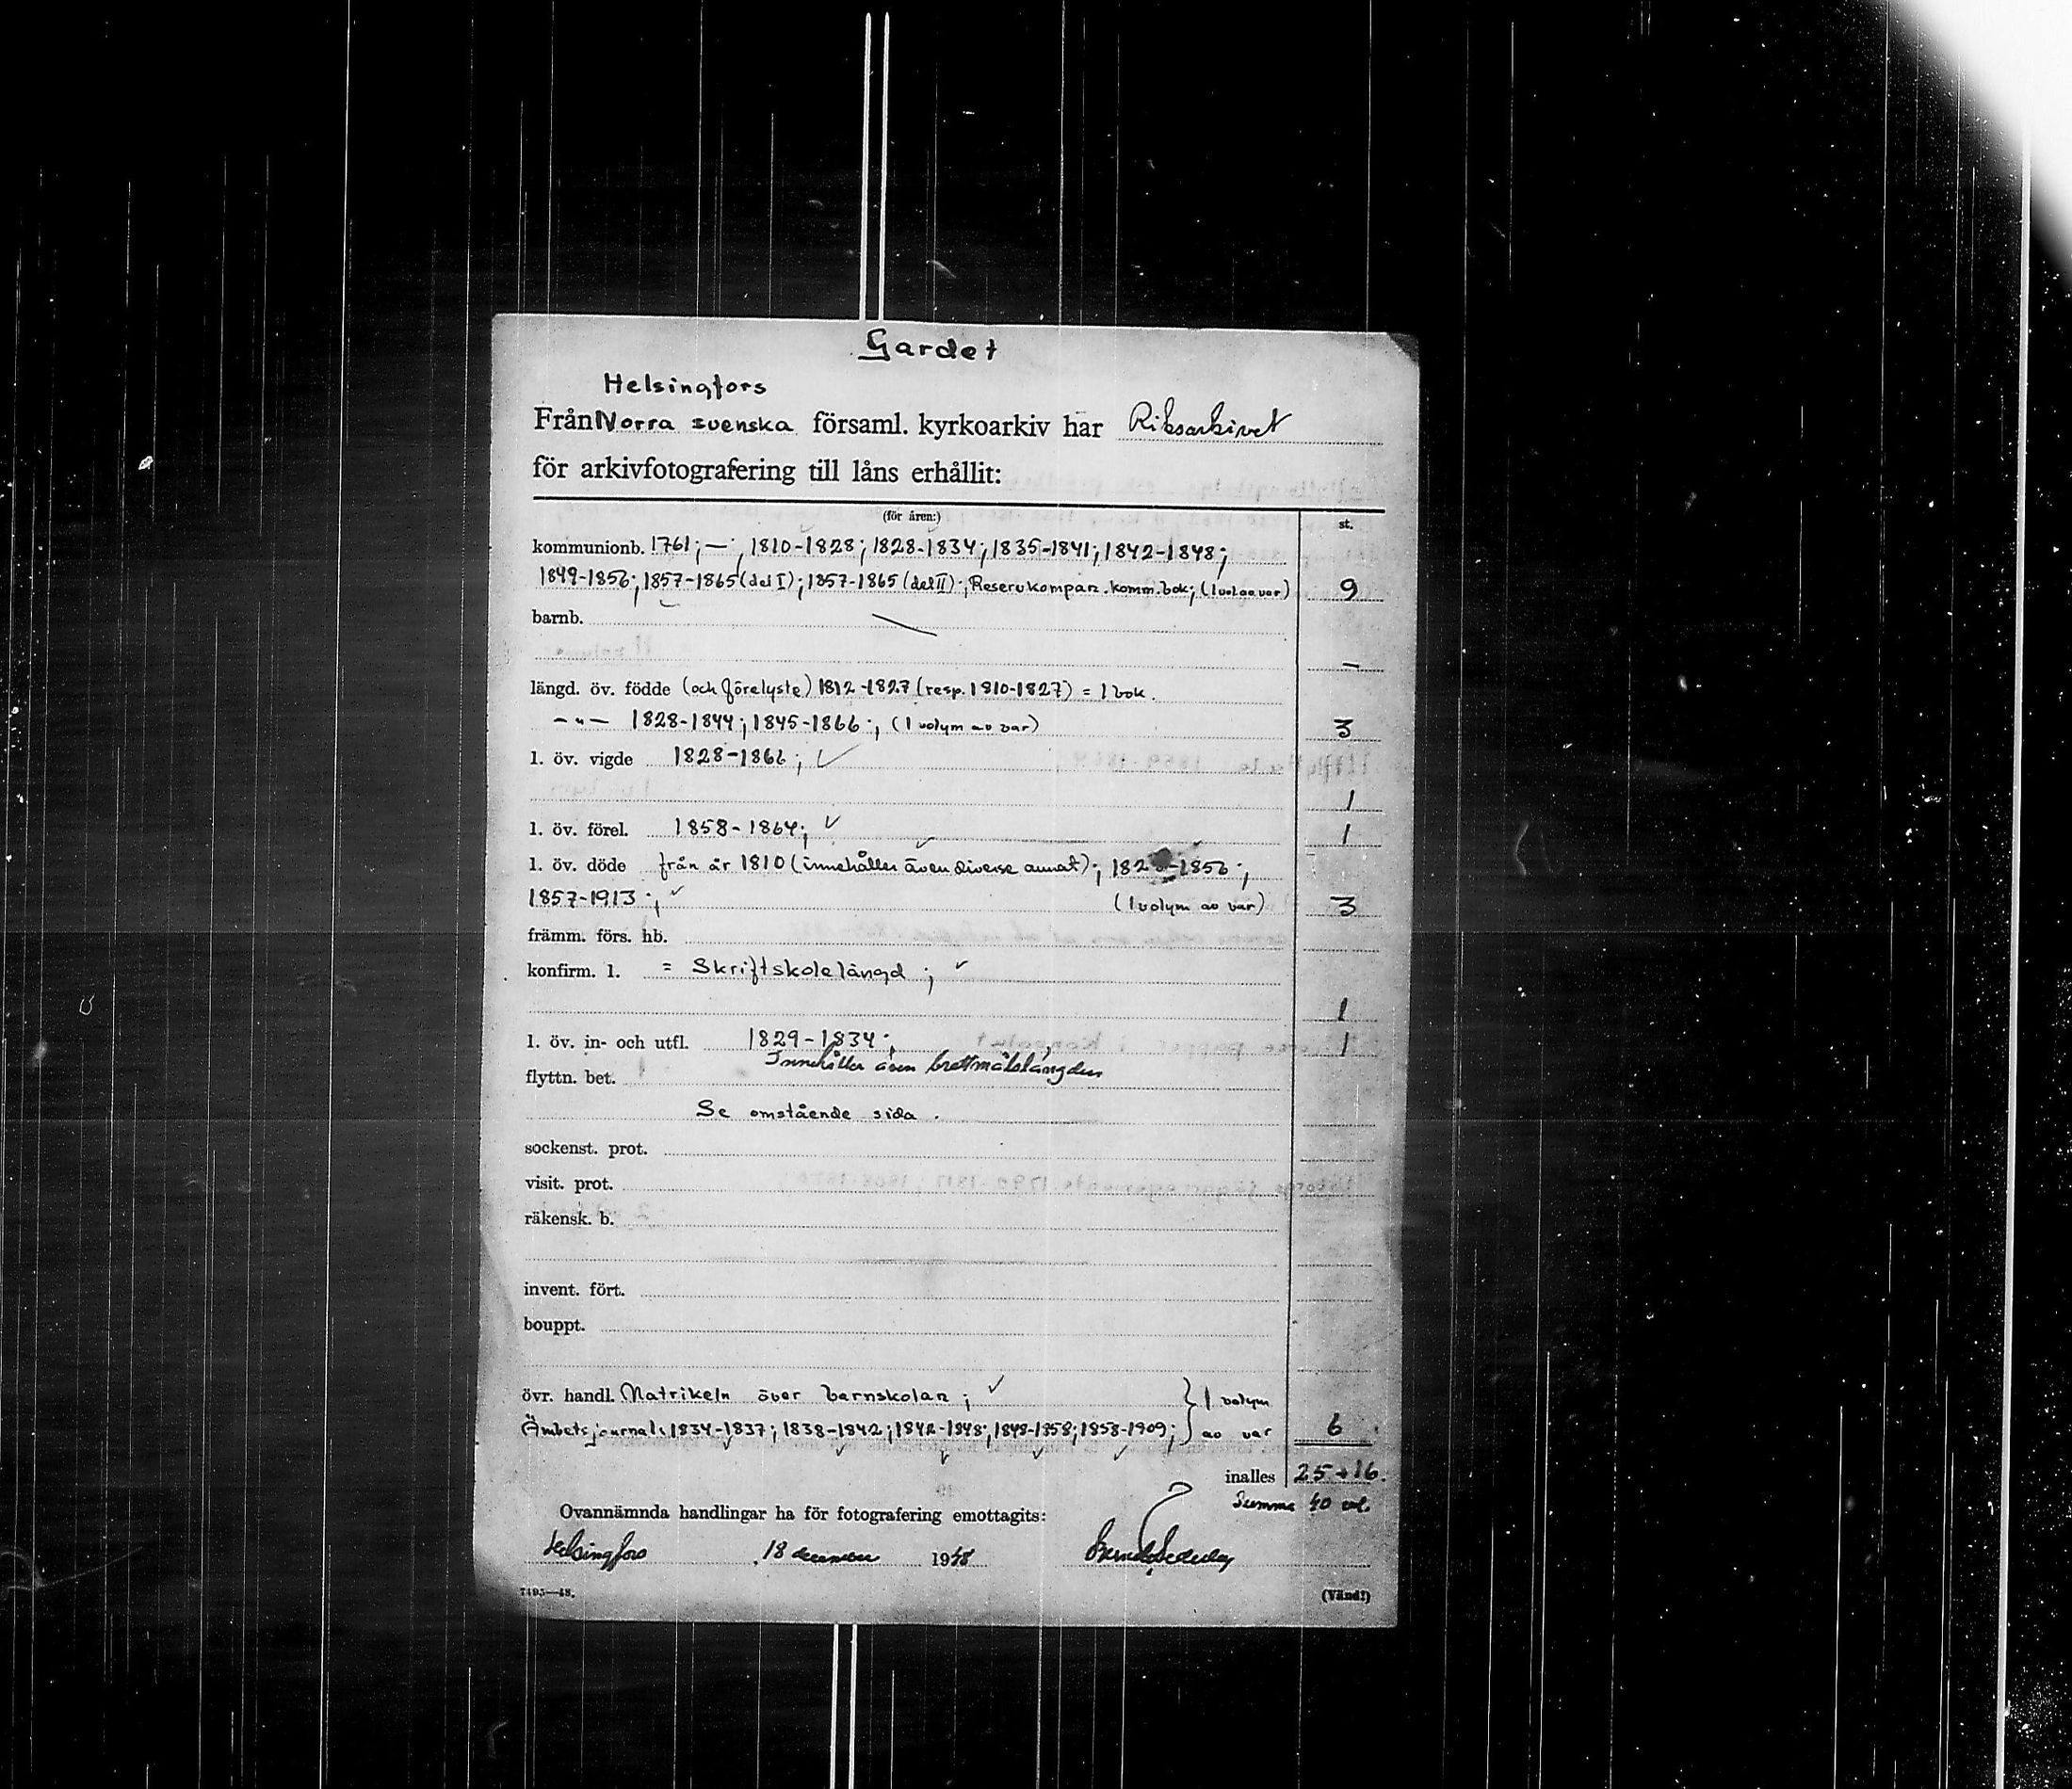 Gardet
Helsingfors
Från Norra svenska församl. kyrkoarkiv har Riksarkivet
för arkivfotografering till låns erhållit:
(för åren:) st.
kommunionb. 1761; — ; 1810-1828; 1828-1834; 1835-1841; 1842-1848;
1849-1856; 1857-1865 (del I); 1857-1865 (del II); Reservkompan. komm. bok; (1 vol av var) 9
barnb.
—
längd. öv. födde (och förelyste) 1812-1827 (resp. 1810-1827) = 1 bok.
— " — 1828-1844; 1845-1866; (1 volym av var) 3
l. öv. vigde 1828-1866; ✓
1
l. öv. förel. 1858-1864; ✓ 1
l. öv. döde från år 1810 (innehåller även diverse annat); 182 -1856;
1857-1913; ✓ (1 volym av var) 3
främm. förs. hb.
konfirm. l. = Skriftskolelängd; ✓
1
l. öv. in- och utfl. 1829-1834; 1
Innehåller även brottmålslängden
flyttn. bet.
Se omstående sida.
sockenst. prot.
visit. prot.
räkensk. b.
invent. fört.
bouppt.
övr. handl. Matrikeln över barnskolan; ✓ } 1 volym
Ämbetsjournal: 1834-1837; 1838-1842; 1842-1848; 1848-1858; 1858-1909; av var 6
inalles 25 + 16.
Summa 40 vol.
Ovannämnda handlingar ha för fotografering emottagits:
Helsingfors, 18 december 1948
7495—48. (Vänd!)